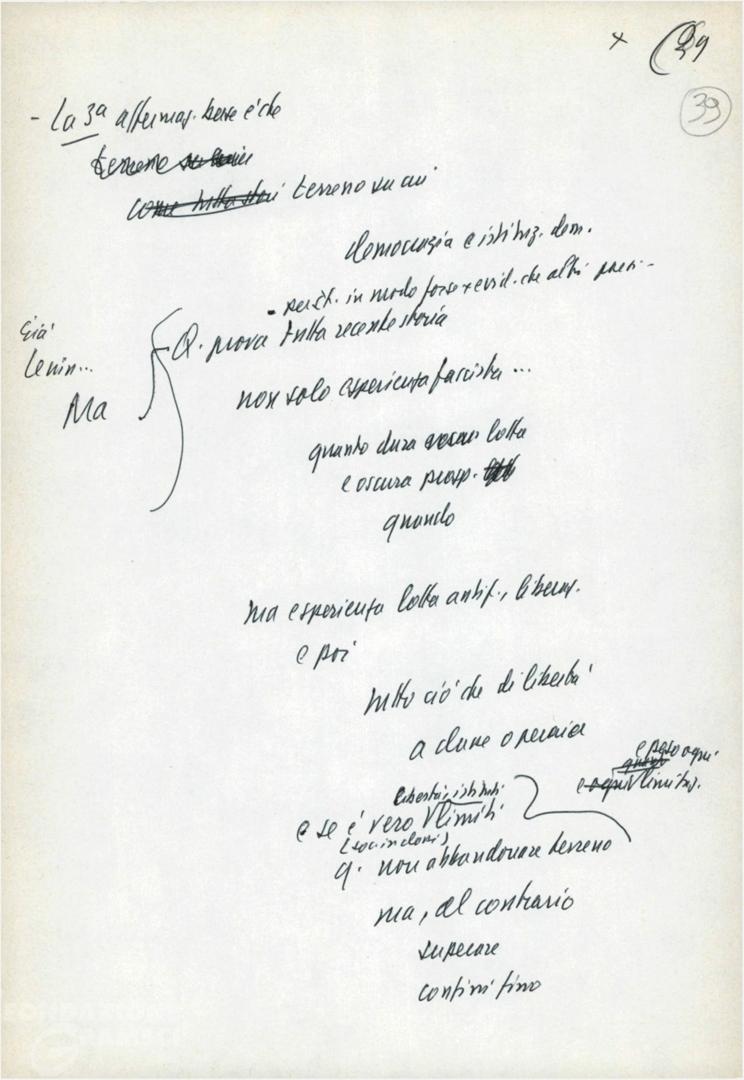 x (29
39
- La 3ª affermaz. base è che
terreno su cui
come tutta storia terreno su cui
democrazia e istituz. dem.
- perché in modo forse + evid. che altri paesi -
Q. prova tutta recente storia
Già
Lenin...
Ma
non solo esperienza fascista ...
quanto dura lotta
e oscura prosp.
quando
ma esperienza lotta antif., liberaz.
e poi
tutto ciò che di libertà
a classe operaia
e peso ogni
e ogni limitaz.
libertà, istituti
e se è vero √ limiti
q. non abbandonare terreno
ma, al contrario
superare
confini fino
FONDAZIONE
GRAMSCI